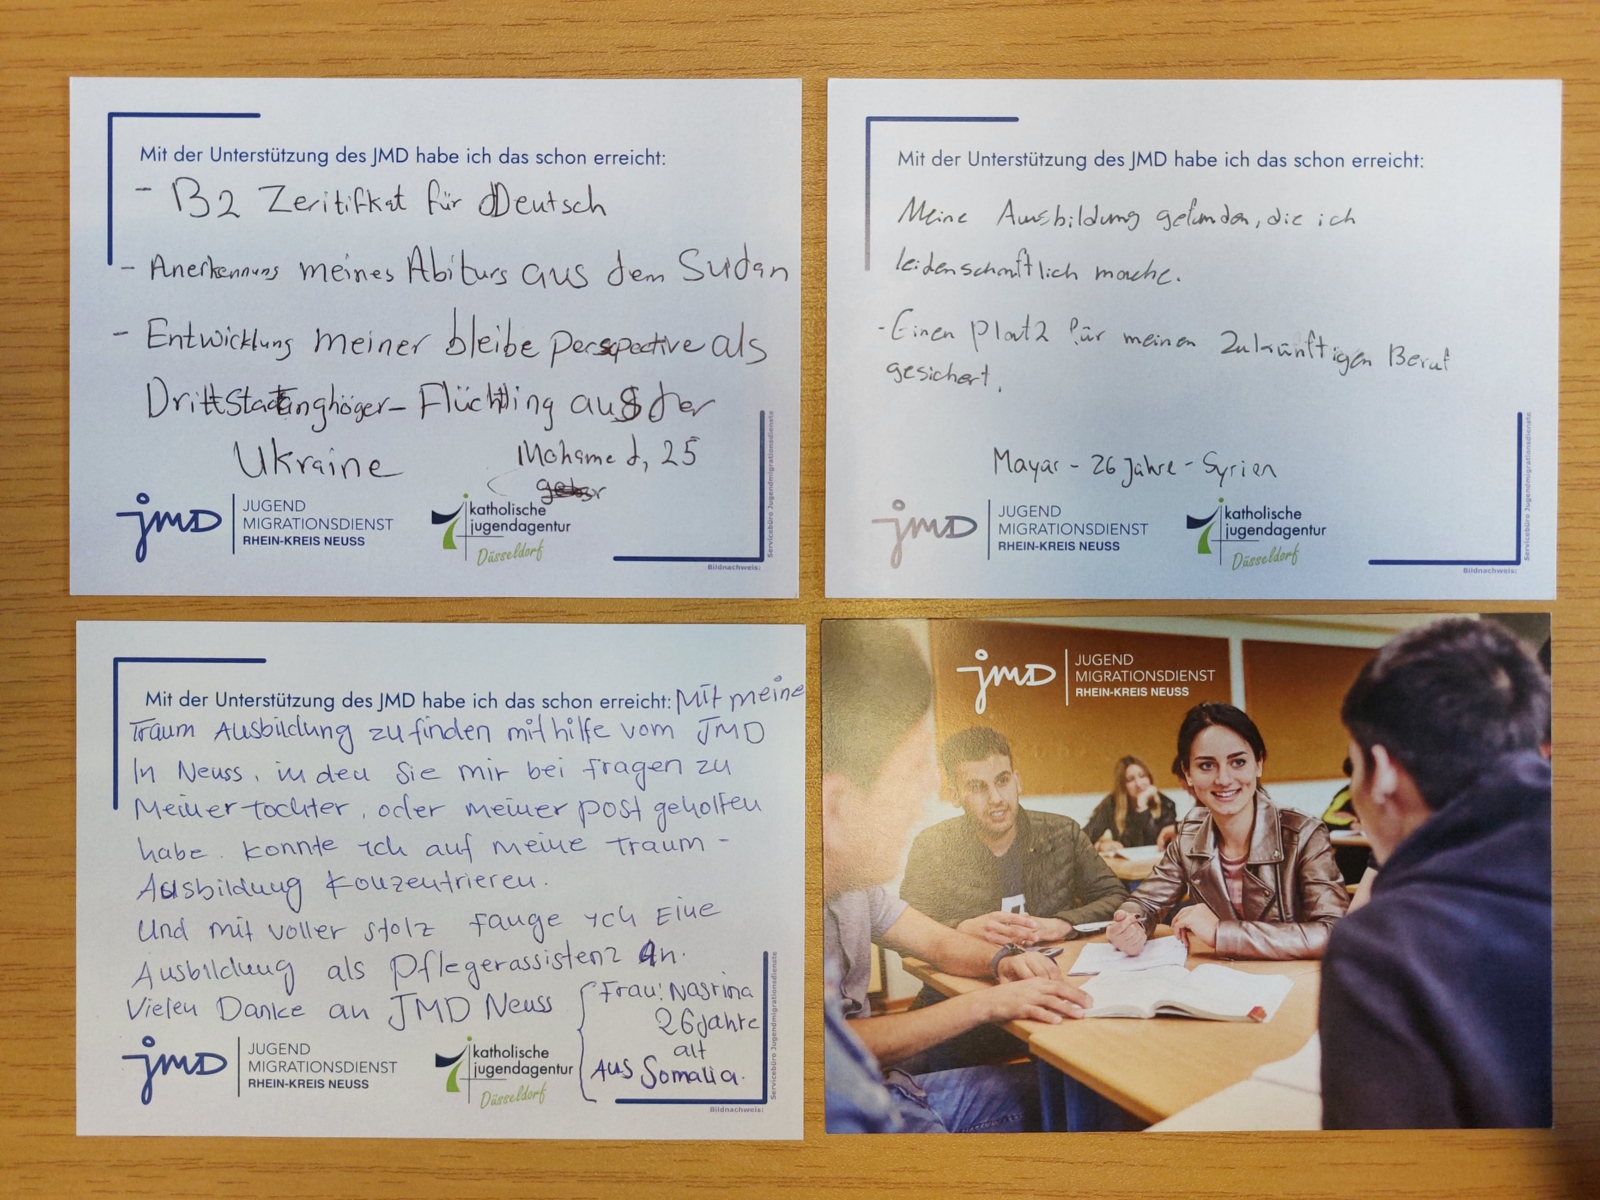 Mit der Unterstützung des JMD habe ich das schon erreicht:
- B2 Zeritifkat für Deutsch
- Anerkennung meines Abiturs aus dem Sudan
- Entwicklung meiner bleibe perspective als
Drittstatanghöger - Flüchtling aus der
Ukraine
Mohamed, 25
jmD
JUGEND
MIGRATIONSDIENST
RHEIN-KREIS NEUSS
katholische
jugendagentur
Düsseldorf
Bildnachweis:
Servicebüro Jugendmigrationsdienste
Mit der Unterstützung des JMD habe ich das schon erreicht:
Meine Ausbildung gefunden, die ich
leidenschaftlich mache.
- Einen Platz für meinen Zukünftigen Beruf
gesichert.
Mayar - 26 Jahre - Syrien
jmD
JUGEND
MIGRATIONSDIENST
RHEIN-KREIS NEUSS
katholische
jugendagentur
Düsseldorf
Bildnachweis:
Servicebüro Jugendmigrationsdienste
Mit der Unterstützung des JMD habe ich das schon erreicht: Mit meine
Traum Ausbildung zu finden mit hilfe vom JMD
In Neuss, in den Sie mir bei fragen zu
Meiner tochter, oder meiner post geholfen
habe. konnte ich auf meine Traum-
Ausbildung konzentrieren.
Und mit voller stolz fange ich Eine
Ausbildung als Pflegerassistenz An.
Vielen Danke an JMD Neuss
Frau: Nasrina
26 Jahre
alt
Aus Somalia.
jmD
JUGEND
MIGRATIONSDIENST
RHEIN-KREIS NEUSS
katholische
jugendagentur
Düsseldorf
Bildnachweis:
Servicebüro Jugendmigrationsdienste
jmD
JUGEND
MIGRATIONSDIENST
RHEIN-KREIS NEUSS